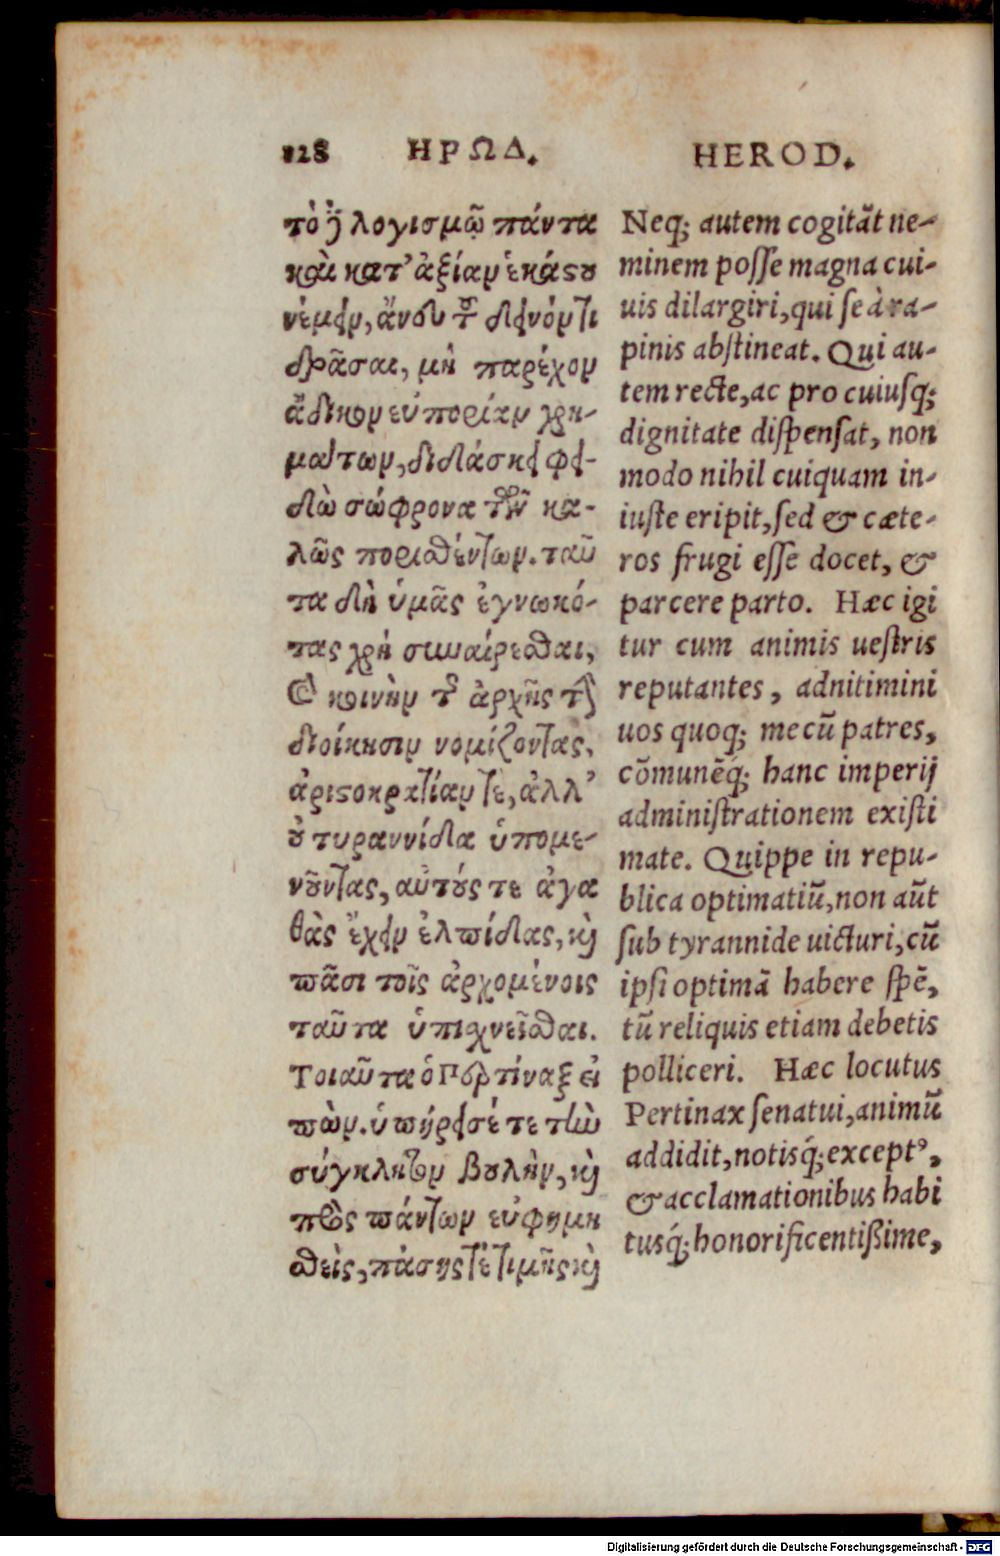 128 ΗΡΩΔ.
τὸ δὲ λογισμῷ πάντα
καὶ κατ' ἀξίαν ἑκάστου
νέμειν, ἄνευ τοῦ δεινόν τι
δρᾶσαι, μὴ παρέχον
ἄδικον εὐπορίαν χρη-
μάτων, διδάσκει φει-
δὼ σώφρονα τῶν κα-
λῶς πορισθέντων. ταῦ
τα δὴ ὑμᾶς ἐγνωκό-
τας χρὴ συναίρεσθαι,
καὶ κοινὴν τῆς ἀρχῆς τὴν
διοίκησιν νομίζοντας,
ἀριστοκρατίαν τε, ἀλλ'
οὐ τυραννίδα ὑπομε-
νοῦντας, αὐτούς τε ἀγα
θὰς ἔχειν ἐλπίδας, καὶ
πᾶσι τοῖς ἀρχομένοις
ταῦτα ὑπισχνεῖσθαι.
Τοιαῦτα ὁ Περτίναξ εἰ
πὼν. ὑπήρεισέ τε τὴν
σύγκλητον βουλὴν, καὶ
πρὸς πάντων εὐφημη
θεὶς, πάσης τε τιμῆς καὶ
HEROD.
Neq; autem cogitãt ne-
minem posse magna cui-
uis dilargiri, qui se à ra-
pinis abstineat. Qui au-
tem recte, ac pro cuiusq;
dignitate dispensat, non
modo nihil cuiquam in-
iuste eripit, sed & cæte-
ros frugi esse docet, &
parcere parto. Hæc igi
tur cum animis uestris
reputantes, adnitimini
uos quoq; mecũ patres,
cõmunẽq́; hanc imperij
administrationem existi
mate. Quippe in repu-
blica optimatiũ, non aũt
sub tyrannide uicturi, cũ
ipsi optimã habere spẽ,
tũ reliquis etiam debetis
polliceri. Hæc locutus
Pertinax senatui, animũ
addidit, notisq́; exceptꝰ,
& acclamationibus habi
tusq́; honorificentißime,
Digitalisierung gefördert durch die Deutsche Forschungsgemeinschaft - DFG